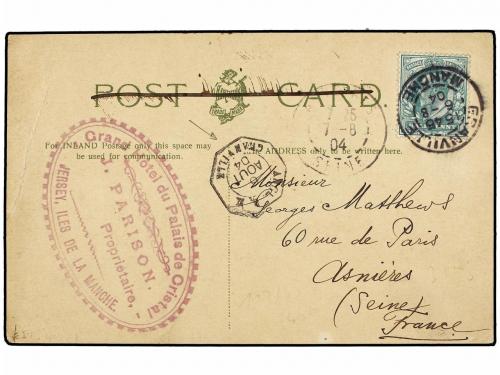 POST CARD.
For INLAND Postage only this space may
be used for communication.
The ADDRESS only to be written here.
Grand Hotel du Palais de Cristal
PARISON.
Propriétaire.
JERSEY, ILES DE LA MANCHE
GRANVILLE
AOUT
04
04
SEINE
GRANVILLE
MANCHE
04
Monsieur
Georges Matthews
60 rue de Paris
Asnières
(Seine)
France